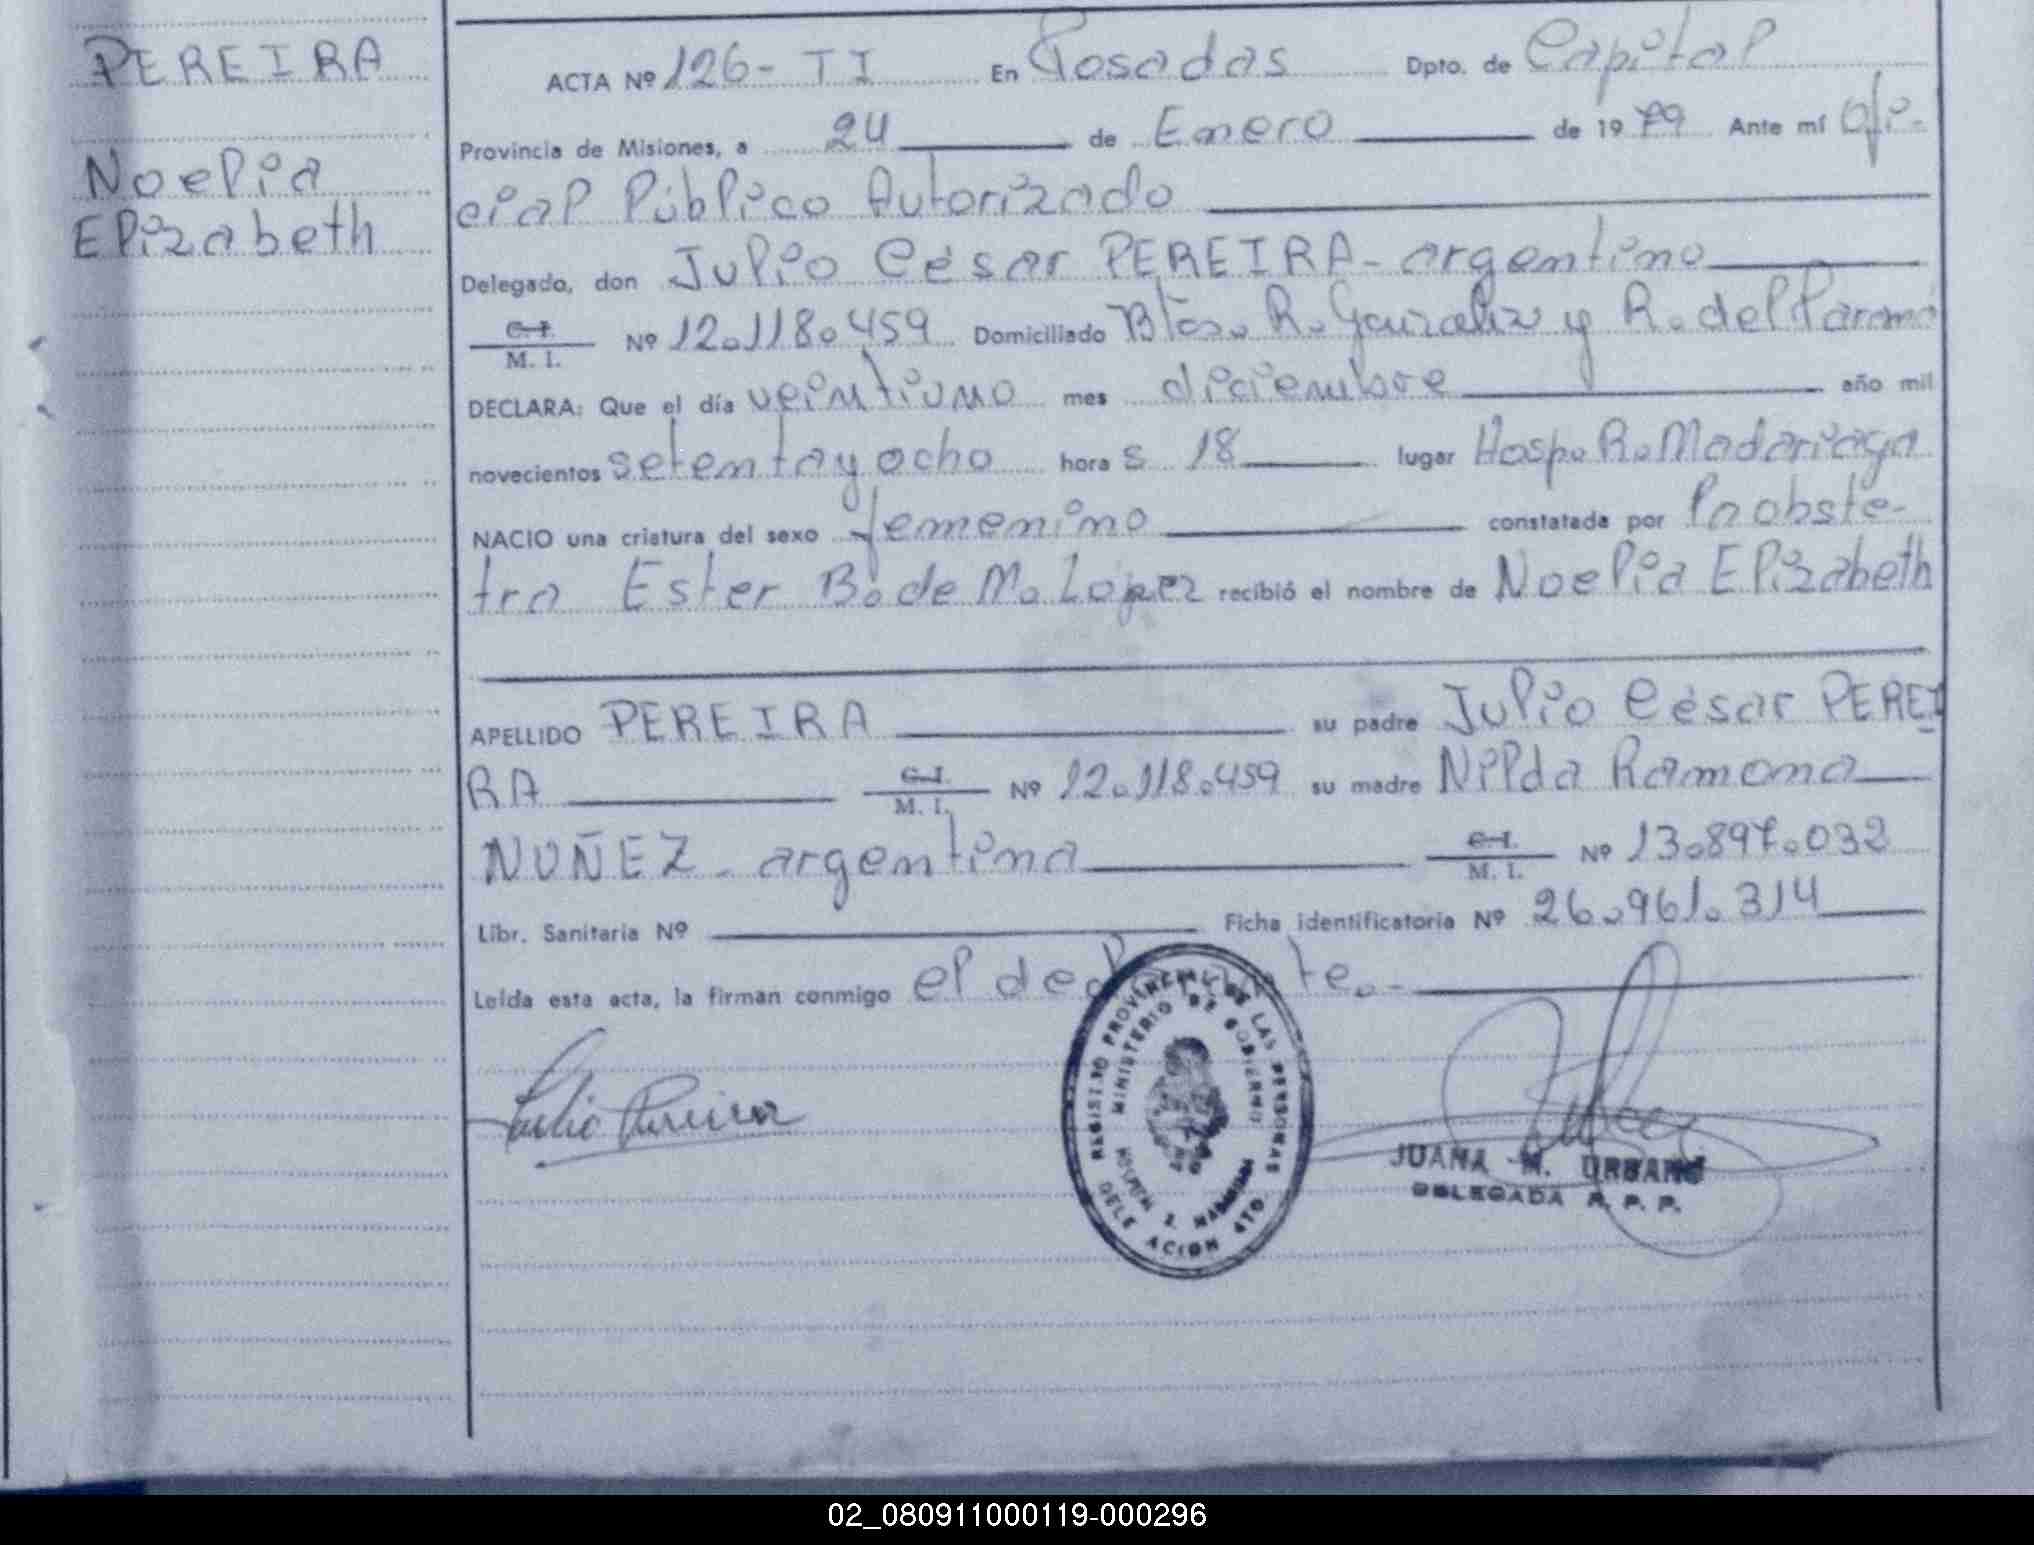 PEREIRA
Noelia
Elizabeth
ACTA Nº 126- TI En Posadas Dpto. de Capital
Provincia de Misiones, a 24 de Enero de 1979 Ante mí Ofi-
cial Público Autorizado
Delegado, don Julio César PEREIRA- argentino
C. I.
M. I. Nº 12.118.459 Domiciliado R. y R. del
DECLARA: Que el día veintiuno mes diciembre año mil
novecientos setenta y ocho hora s 18 lugar Hosp. R. Madariaga
NACIO una criatura del sexo femenino constatada por la obste-
tra Ester B. de M. Lopez recibió el nombre de Noelia Elizabeth
APELLIDO PEREIRA su padre Julio César PEREI
RA C. I. M. I. Nº 12.118.459 su madre Nilda Ramona
NUÑEZ - argentina C. I. M. I. Nº 13.897.032
Libr. Sanitaria Nº Ficha identificatoria Nº 26.961.314
Leída esta acta, la firman conmigo el declarante.-
Julio Pereira
REGISTRO PROVINCIAL DE LAS PERSONAS
MINISTERIO DE GOBIERNO
DELEGACION 4TO
JUANA M. URBANO
DELEGADA R. P. P.
02_080911000119-000296